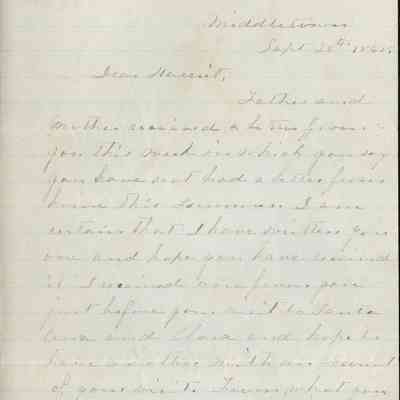 Middletown
Sept 20th 1865
Dear Harriet,
Father and
Mother received a letter from
you this week in which you say
you have not had a letter from
home this Summer I am
certain that I have written you
one and hope you have received
it I received one from you
just before you went to Santa
and and hope to
have another with an
of your visit. From what you